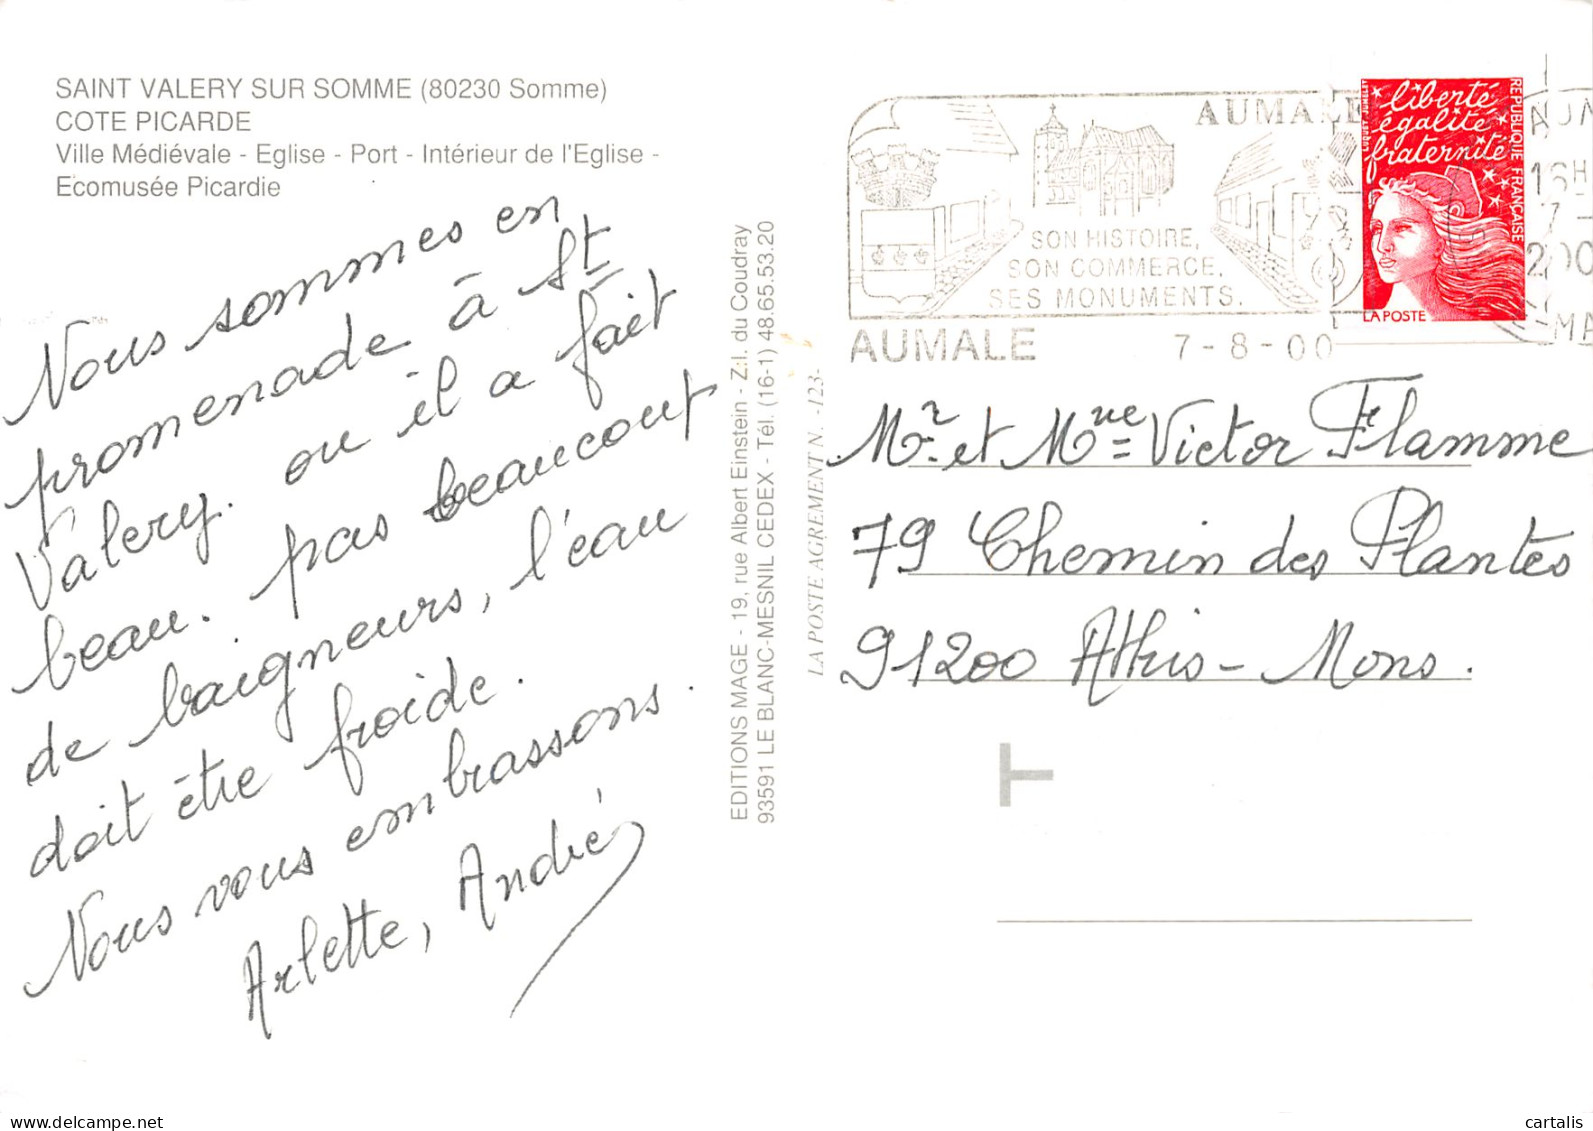 SAINT VALERY SUR SOMME (80230 Somme)
COTE PICARDE
Ville Médiévale - Eglise - Port - Intérieur de l'Eglise -
Ecomusée Picardie
Nous sommes en
promenade à St
Valery. ou il a fait
beau. pas beaucoup
de baigneurs, l'eau
doit être froide.
Nous vous embrassons.
Arlette, André
EDITIONS MAGE - 19, rue Albert Einstein - Z.I. du Coudray
93591 LE BLANC-MESNIL CEDEX - Tél. (16-1) 48.65.53.20
LA POSTE AGREMENT N. -123-
AUMALE
SON HISTOIRE,
SON COMMERCE,
SES MONUMENTS.
AUMALE 7-8-00
liberté
égalité
fraternité
REPUBLIQUE FRANÇAISE
LA POSTE
16H
7-
200
MA
Mr et Mme Victor Flamme
79 Chemin des Plantes
91200 Athis-Mons.
T
cartalis